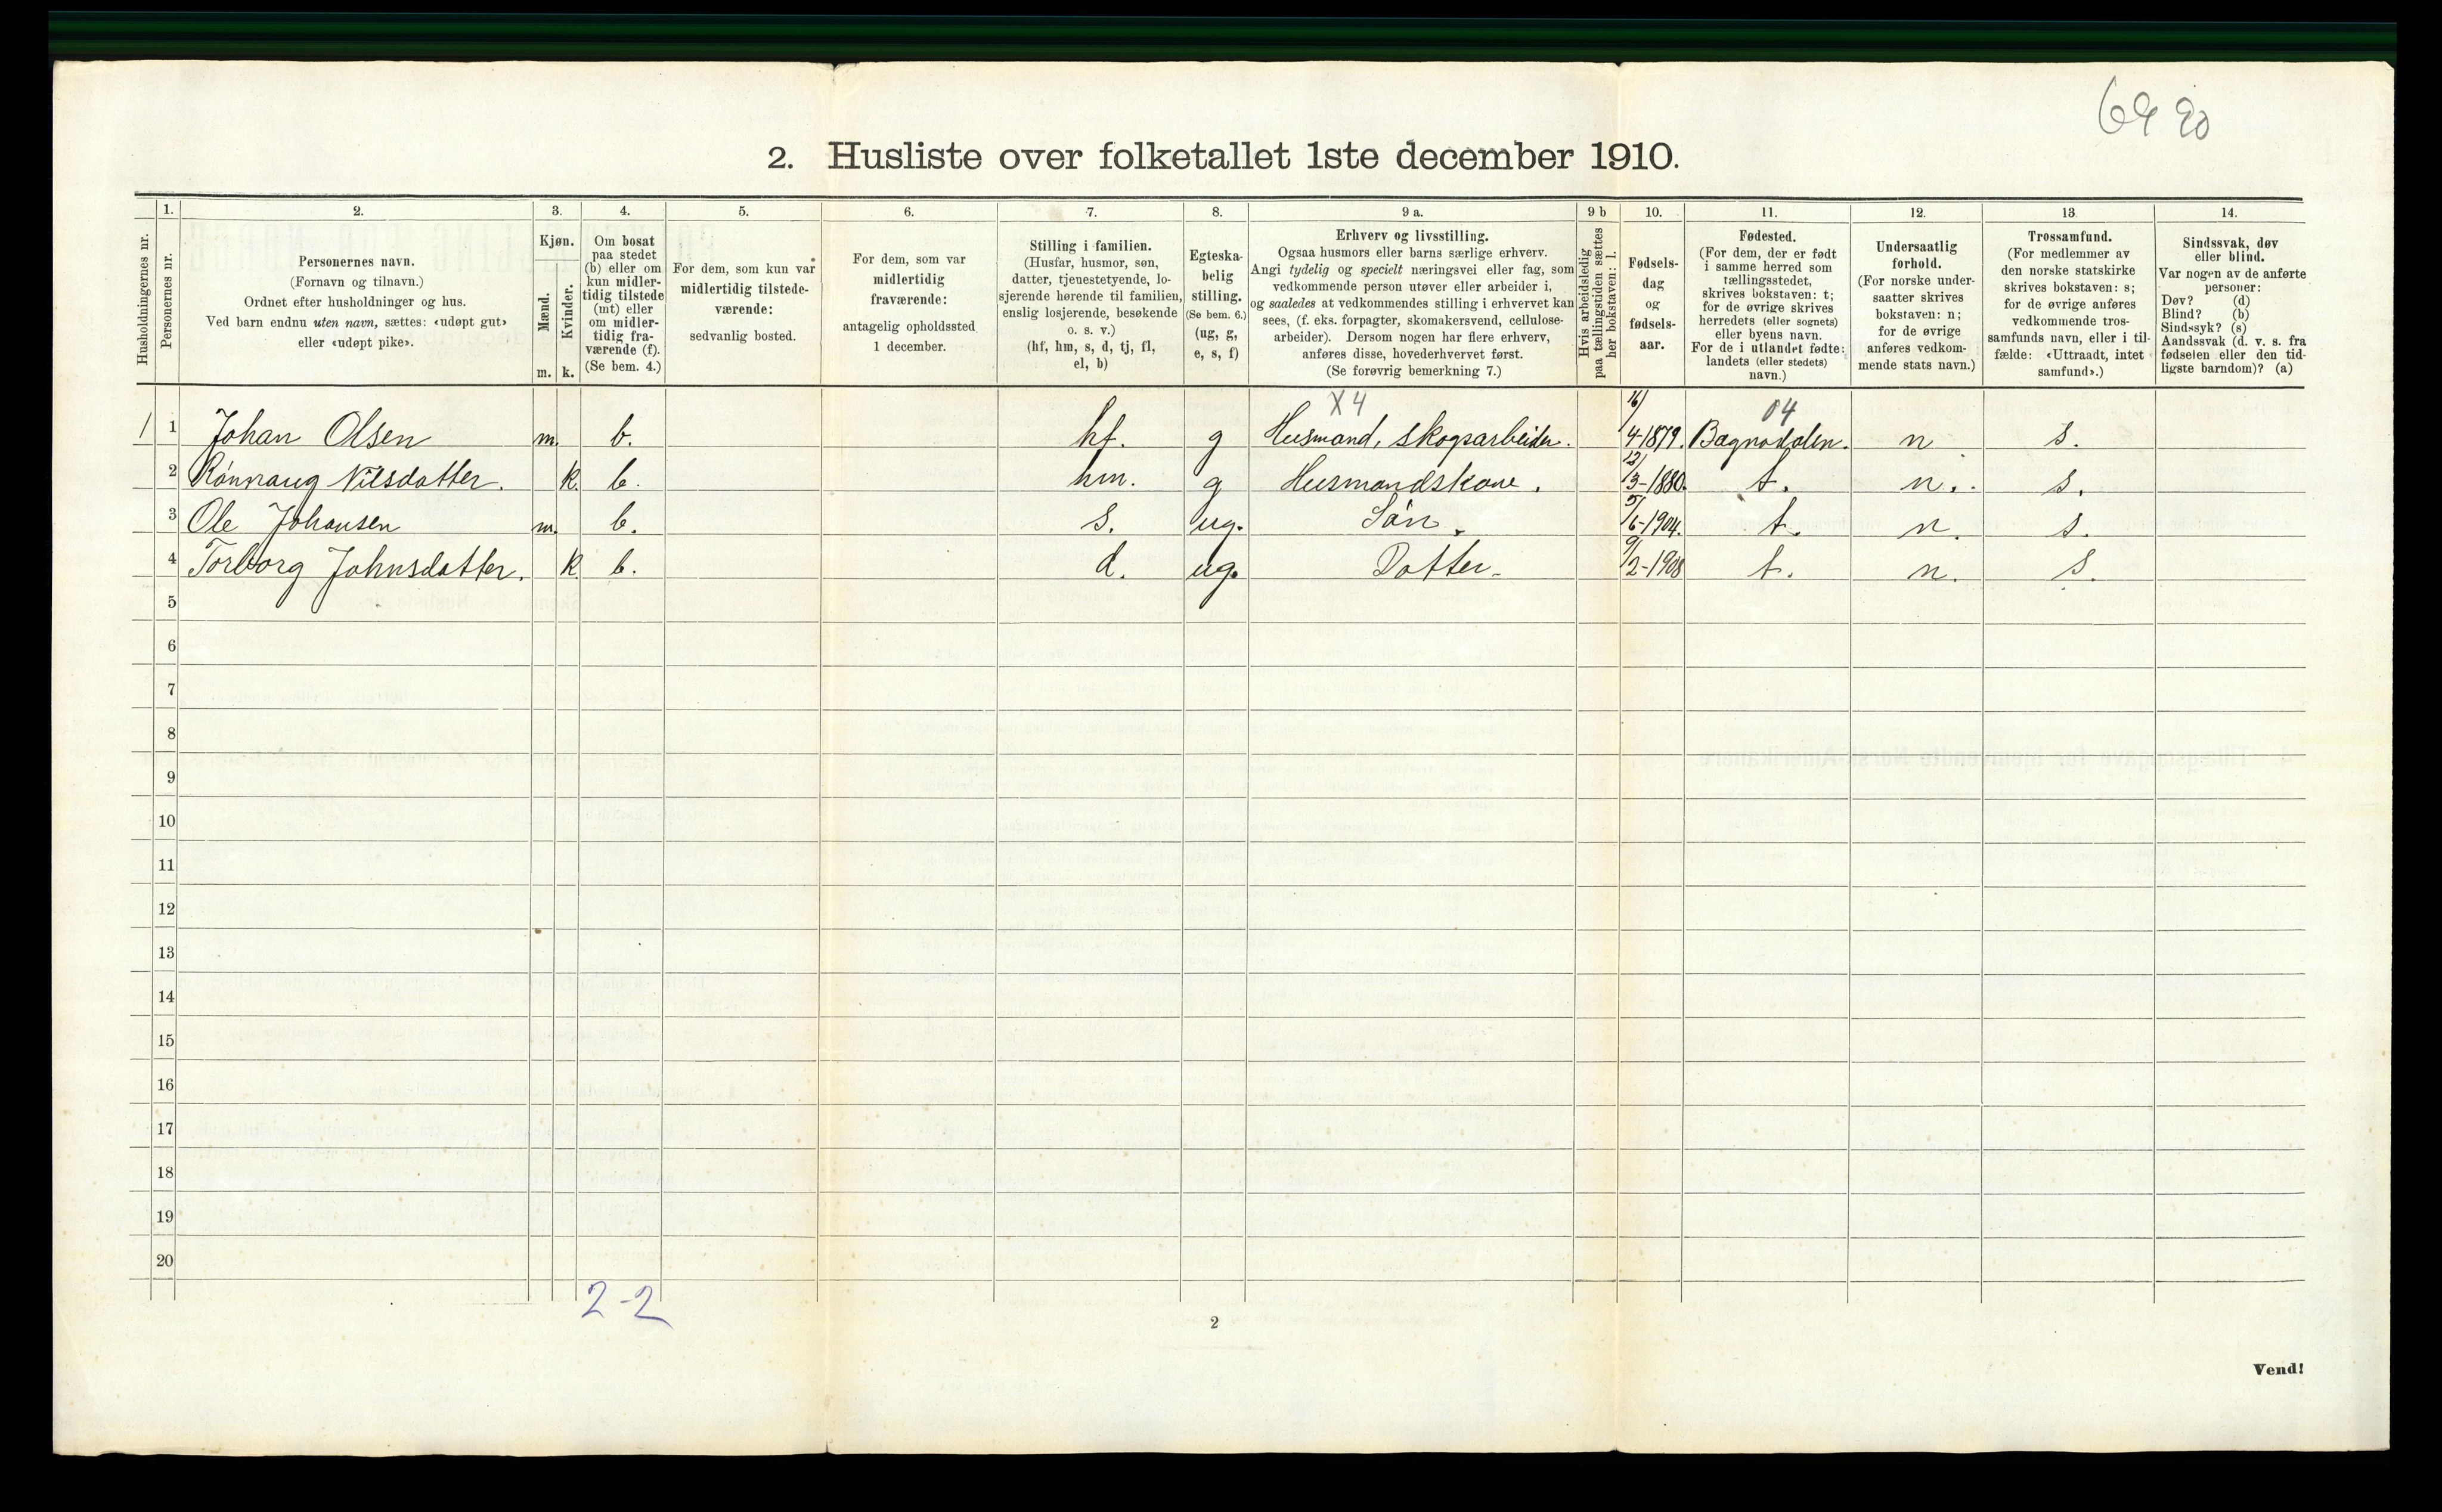 6490
2. Husliste over folketallet 1ste december 1910.
Husholdningernes nr.
1.
Personernes nr.
2.
Personernes navn.
(Fornavn og tilnavn.)
Ordnet efter husholdninger og hus.
Ved barn endnu uten navn, sættes: «udøpt gut»
eller «udøpt pike».
3.
Kjøn.
Mænd.
Kvinder.
m. k.
4.
Om bosat
paa stedet
(b) eller om
kun midler-
tidig tilstede
(mt) eller
om midler-
tidig fra-
værende (f).
(Se bem. 4.)
5.
For dem, som kun var
midlertidig tilstede-
værende:
sedvanlig bosted.
6.
For dem, som var
midlertidig
fraværende:
antagelig opholdssted
1 december.
7.
Stilling i familien.
(Husfar, husmor, søn,
datter, tjenestetyende, lo-
sjerende hørende til familien,
enslig losjerende, besøkende
o. s. v.)
(hf, hm, s, d, tj, fl,
el, b)
8.
Egteska-
belig
stilling.
(Se bem. 6.)
(ug, g,
e, s, f)
9 a.
Erhverv og livsstilling.
Ogsaa husmors eller barns særlige erhverv.
Angi tydelig og specielt næringsvei eller fag, som
vedkommende person utøver eller arbeider i,
og saaledes at vedkommendes stilling i erhvervet kan
sees, (f. eks. forpagter, skomakersvend, cellulose-
arbeider). Dersom nogen har flere erhverv,
anføres disse, hovederhvervet først.
(Se forøvrig bemerkning 7.)
9 b
Hvis arbeidsledig
paa tællingstiden sættes
her bokstaven: l.
10.
Fødsels-
dag
og
fødsels-
aar.
11.
Fødested.
(For dem, der er født
i samme herred som
tællingsstedet,
skrives bokstaven: t;
for de øvrige skrives
herredets (eller sognets)
eller byens navn.
For de i utlandet fødte:
landets (eller stedets)
navn.)
12.
Undersaatlig
forhold.
(For norske under-
saatter skrives
bokstaven: n;
for de øvrige
anføres vedkom-
mende stats navn.)
13
Trossamfund.
(For medlemmer av
den norske statskirke
skrives bokstaven: s;
for de øvrige anføres
vedkommende tros-
samfunds navn, eller i til-
fælde: «Uttraadt, intet
samfund».)
14.
Sindssvak, døv
eller blind.
Var nogen av de anførte
personer:
Døv? (d)
Blind? (b)
Sindssyk? (s)
Aandssvak (d. v. s. fra
fødselen eller den tid-
ligste barndom)? (a)
X4 04
1 1 Johan Olsen m. b. hf. g Husmand, skogsarbeider. 16/4-1879. Bagnsdalen. n s.
2 Rönnaug Nilsdatter. k. b. hm. g Husmandskone. 12/3-1880. t. n. s.
3 Ole Johansen m. b. s. ug. Sön. 5/6-1904. t. n. s.
4 Torborg Johnsdatter. k. b. d. ug. Datter. 9/2-1908 t. n. s.
5
6
7
8
9
10
11
12
13
14
15
16
17
18
19
20
2-2
2
Vend!